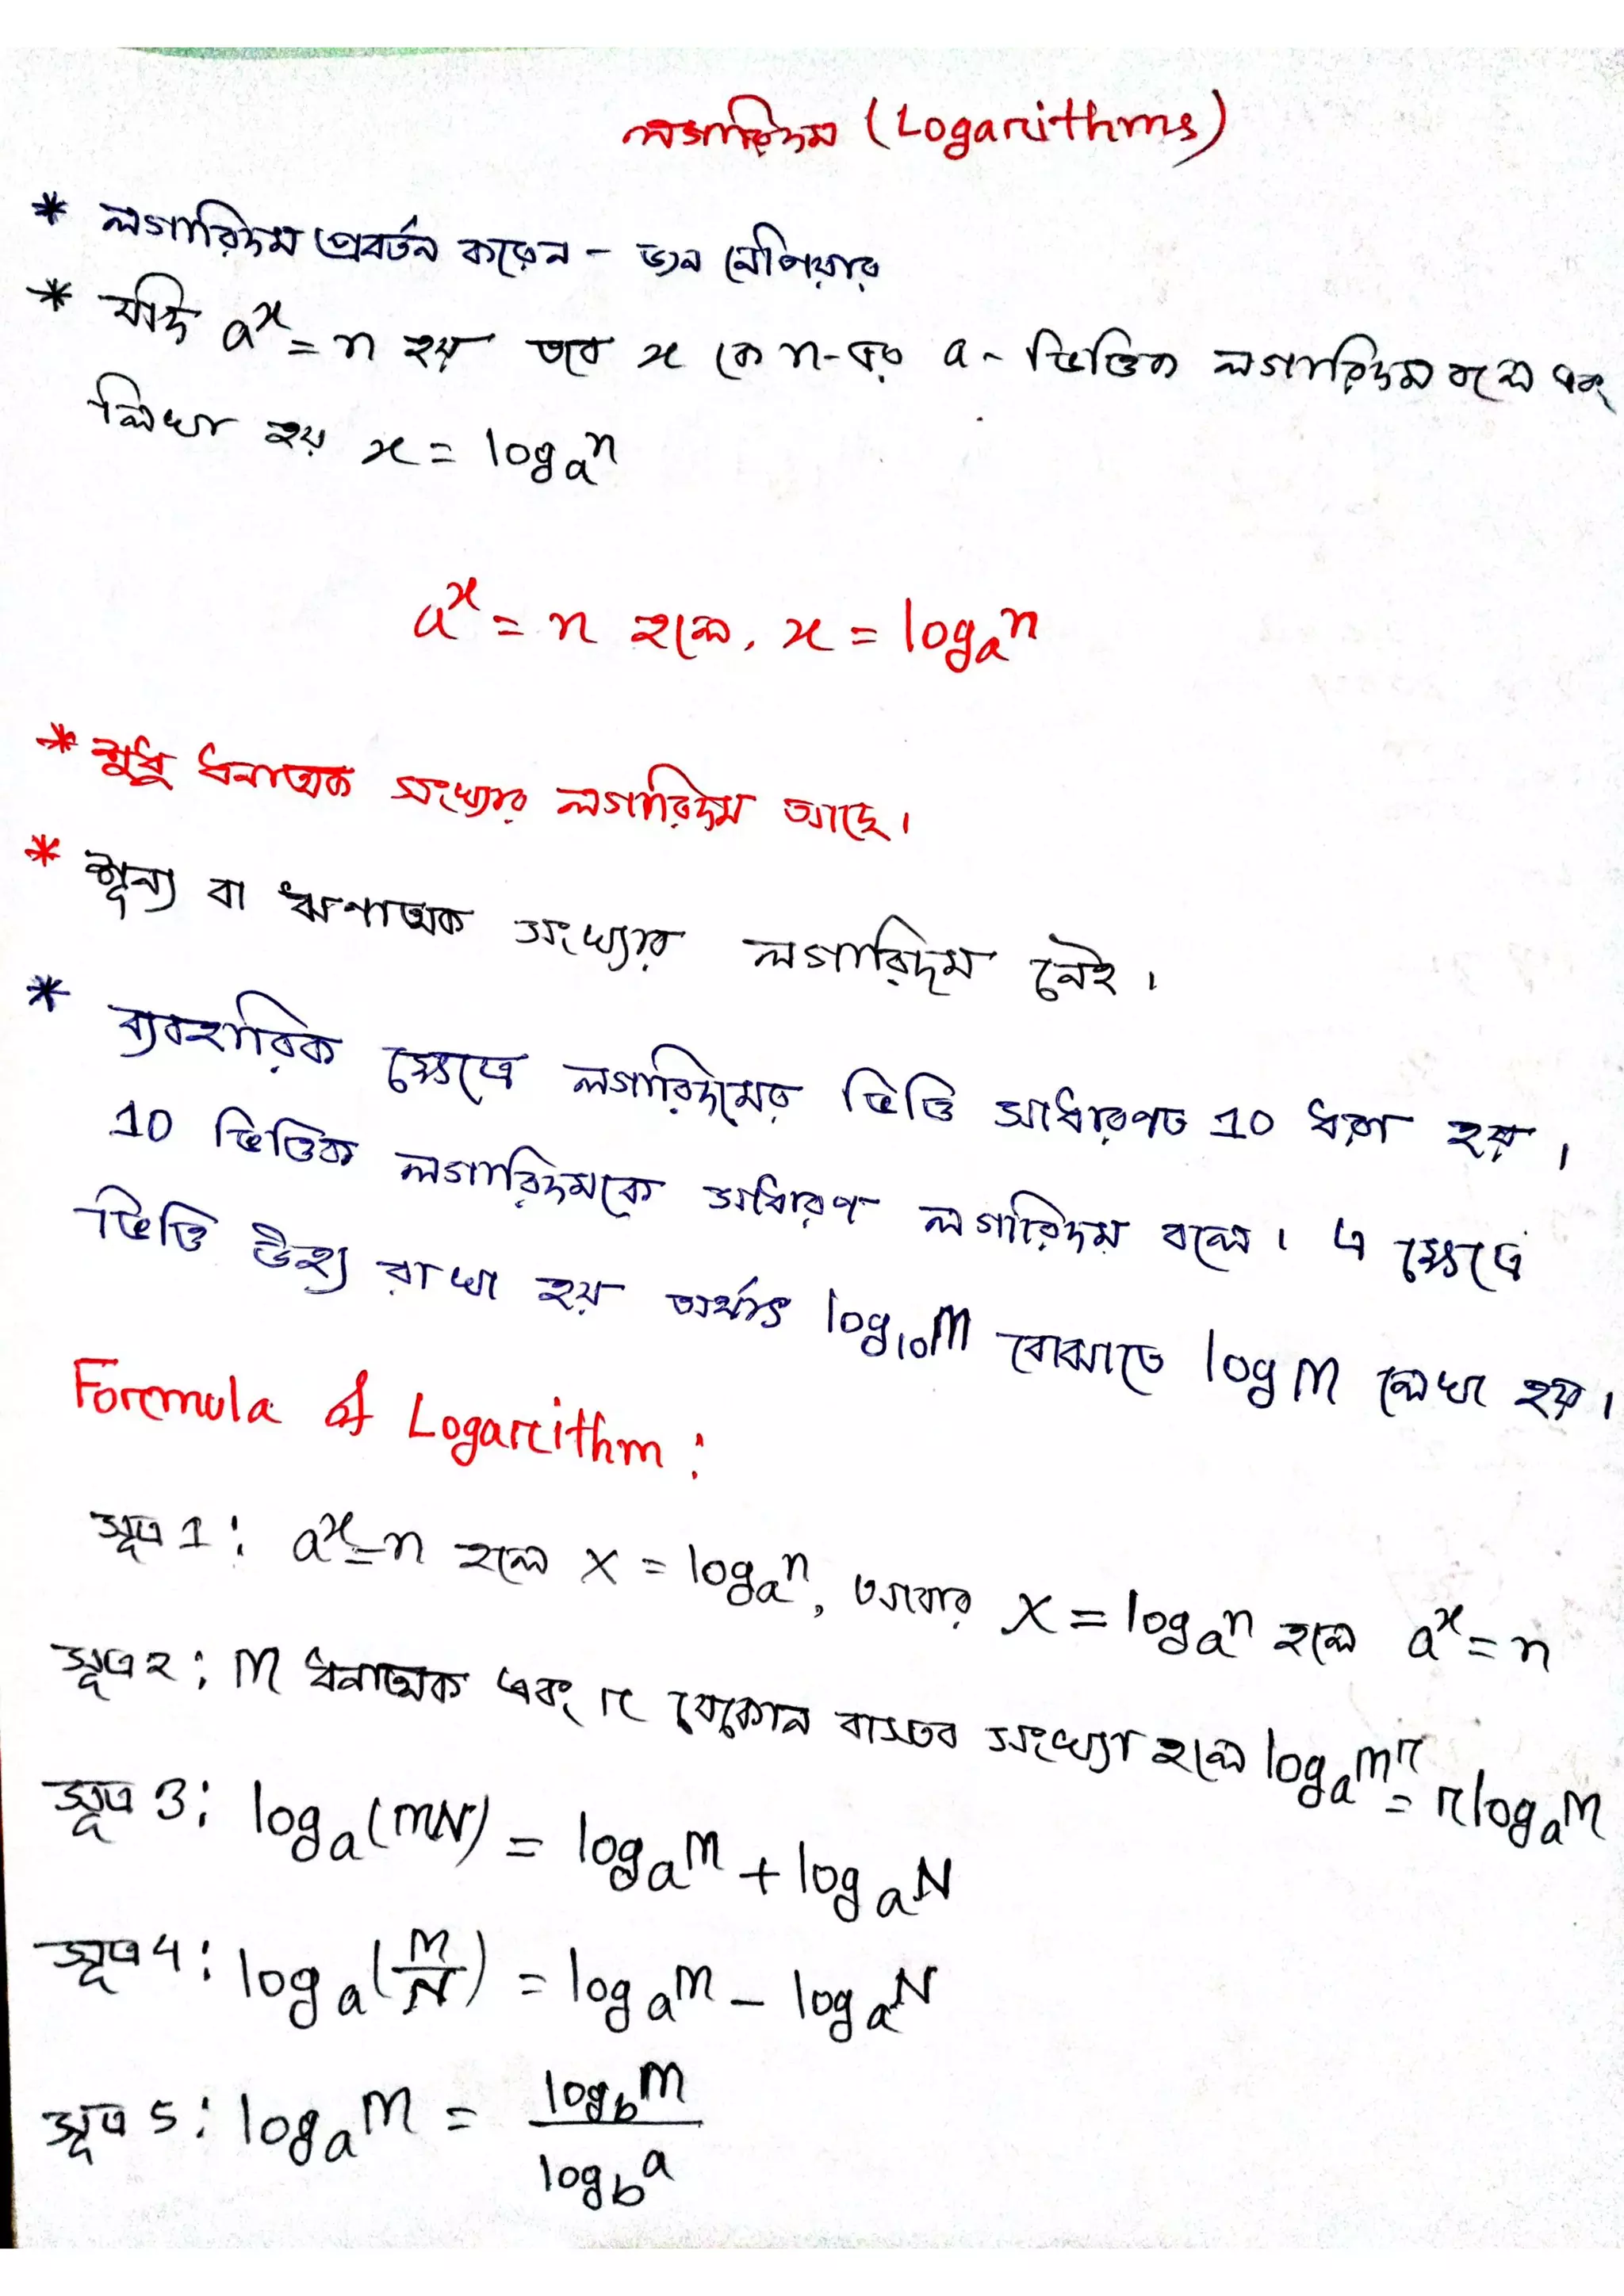 লগারিদম (Logarithms)
* লগারিদম প্রবর্তন করেন - জন নেপিয়ার
* যদি aˣ = n হয় তবে x কে n-এর a- ভিত্তিক লগারিদম বলে এবং
লিখা হয় x = logₐn
aˣ = n হলে, x = logₐn
* শুধু ধনাত্মক সংখ্যার লগারিদম আছে।
* শূন্য বা ঋণাত্মক সংখ্যার লগারিদম নেই।
* ব্যবহারিক ক্ষেত্রে লগারিদমের ভিত্তি সাধারণত 10 ধরা হয়।
10 ভিত্তিক লগারিদমকে সাধারণ লগারিদম বলে। এ ক্ষেত্রে
ভিত্তি উহ্য রাখা হয় অর্থাৎ log₁₀M বোঝাতে log M লেখা হয়।
Formula of Logarithm:
সূত্র 1: aˣ = n হলে x = logₐn, আবার x = logₐn হলে aˣ = n
সূত্র ২: M ধনাত্মক এবং r যেকোন বাস্তব সংখ্যা হলে logₐMʳ = r logₐM
সূত্র 3: logₐ(MN) = logₐM + logₐN
সূত্র 4: logₐ(M/N) = logₐM - logₐN
সূত্র 5: logₐM = log_b M / log_b a